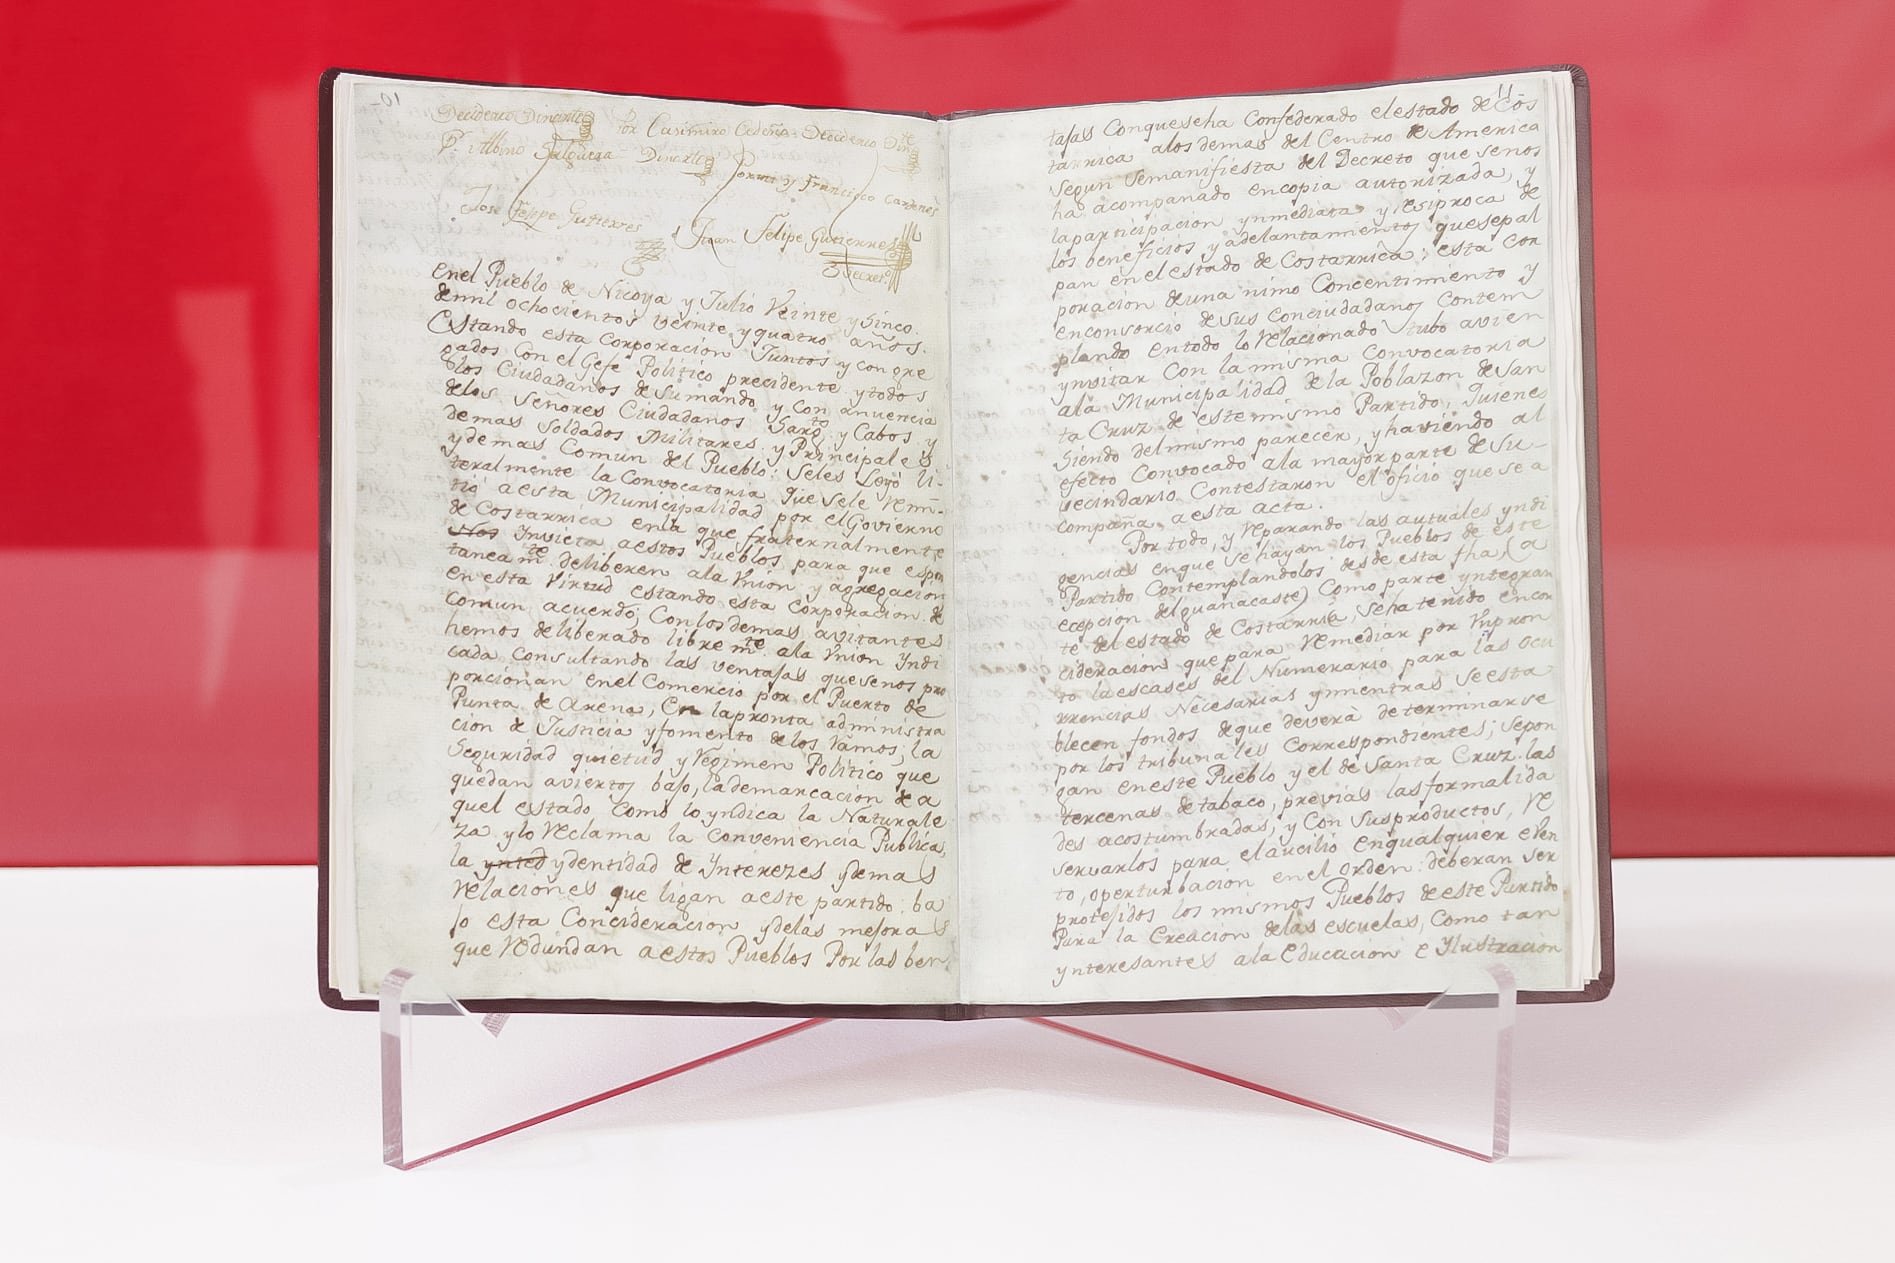 -01
Deciderio Dinarte por Casimiro Cedeña Deciderio Dinte
Pr. Albino Salguera Dinarte Por mi y Francisco Cardenes
Jose Felipe Gutierres
Juan Felipe Gutierres
Secreto.
enel Pueblo de Nicoya y Julio Veinte y sinco.
demil ochocientos veinte y quatro años.
Estando esta corporacion Juntos y congre
gados con el Gefe Politico precidente y todos
los Ciudadanos de Sumando y con anuencia
delos Señores Ciudadanos Sargtos y Cabos y
demas Soldados Militares y Principales
y demas Comun del Pueblo: Seles Leyó li-
teralmente la Convocatoria que sele remi-
tió aesta Municipalidad por el Govierno
de Costarrica enla que fraternalmente
Nos Invicta aestos Pueblos para que espon
tanea mte. deliberen ala Vnion y agregacion
en esta virtud estando esta corporacion de
comun acuerdo; Conlosdemas avitantes
hemos deliberado libre mte. ala Vnion Yndi
cada consultando las ventajas quesenos pro
porcionan enel Comercio por el Puerto de
Punta de Arena, En lapronta administra
cion de Justicia y fomento delos Ramos; la
Seguridad quietud y Regimen Politico que
quedan aviertos bajo, lademarcacion de a
quel estado como lo yndica la Naturale
za ylo Reclama la conveniencia Publica,
la ynted ydentidad de Yntereses ydemas
Relaciones que ligan aeste partido: ba
jo esta Concideracion ydelas mejoras
que Redundan aestos Pueblos Por las ben
11
tajas Conqueseha Confederado elestado de Cos
tarrica alos demas del Centro de America
segun semanifiesta del Decreto que senos
ha acompanado encopia autorizada, y
laparticipacion ynmediata y resiproca de
los beneficios y adelantamientos quesepal
pan enelestado de Costarrica; esta cor
poracion deuna nimo Concentimiento y
enconsorcio desus Conciudadanos Contem
plando entodo lo Relacionado tubo avien
ynvitar Con la misma Convocatoria
ala Municipalidad de la Poblazon de San
ta Cruz de este mismo Partido, Quienes
Siendo delmismo parecer, y haviendo al
efecto Convocado ala mayor parte de Su-
vecindario Contestaron el oficio que se a
compaña aesta acta.
Por todo, y Reparando las autuales yndi
gencias enque Se hayan los Pueblos de este
Partido Contemplandolos desde esta fha, (a
ecepcion delguanacaste) Como parte yntegran
te del estado de Costarrica, Seha tenido encon
cideracion que para Remediar por Vnpron
to laescases del Numerario para las ocu
rrencias Necesarias ynmientras seesta
blecen fondos deque deverà determinarse
por los tribunales Correspondientes; sepon
gan eneste Pueblo y el de Santa Cruz las
tercenas de tabaco, previas las formalida
des acostumbradas, y con susproductos, re
servarlos para elaucilio enqualquier even
to, o perturbacion enel orden: deberan ser
protejidos los mismos Pueblos de este Partido
Para la Creacion delas escuelas, Como tan
ynteresantes ala Educacion e Ylustracion